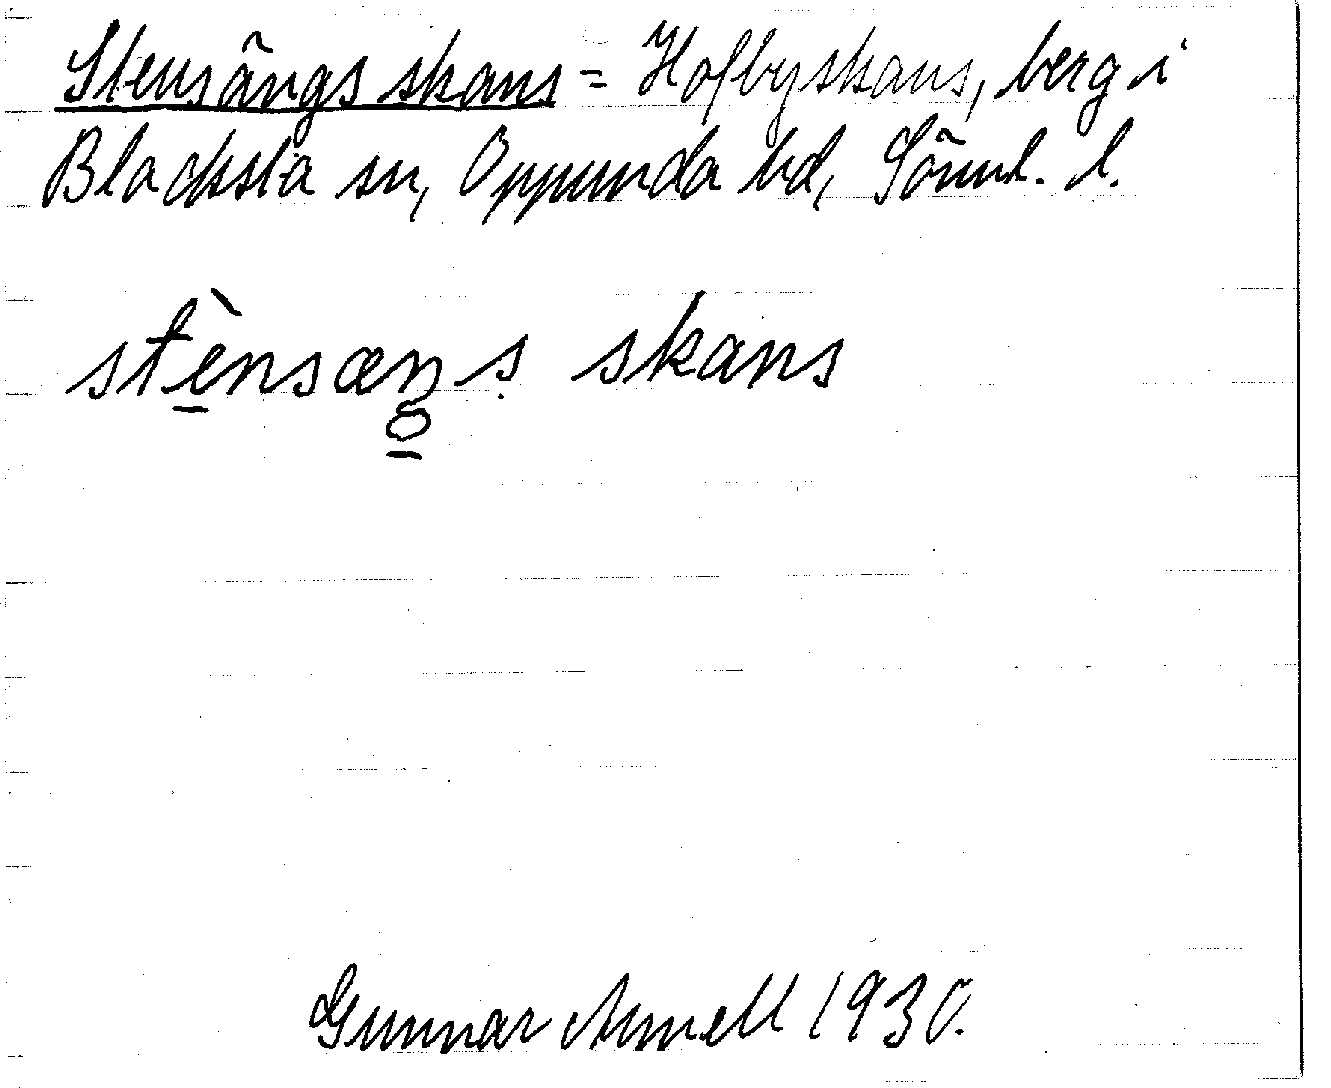 Stensängs skans = Hofbyskans, berg i
Blacksta sn, Oppunda hd, Söml. l.
stènsæŋs skans
Gunnar Armell 1930.